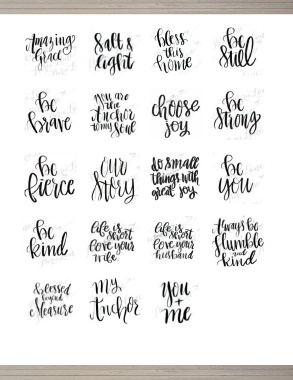 Amazing
Grace
Salt &
Light
bless
this
home
be
still
be
brave
you are
the
Anchor
to my soul
choose
joy
be
strong
be
fierce
our
Story
do small
things with
great joy
be
you
be
kind
life is
short
love your
wife
life is
short
love your
husband
Always be
Humble
and
kind
Blessed
beyond
Measure
my
Anchor
you
+
me